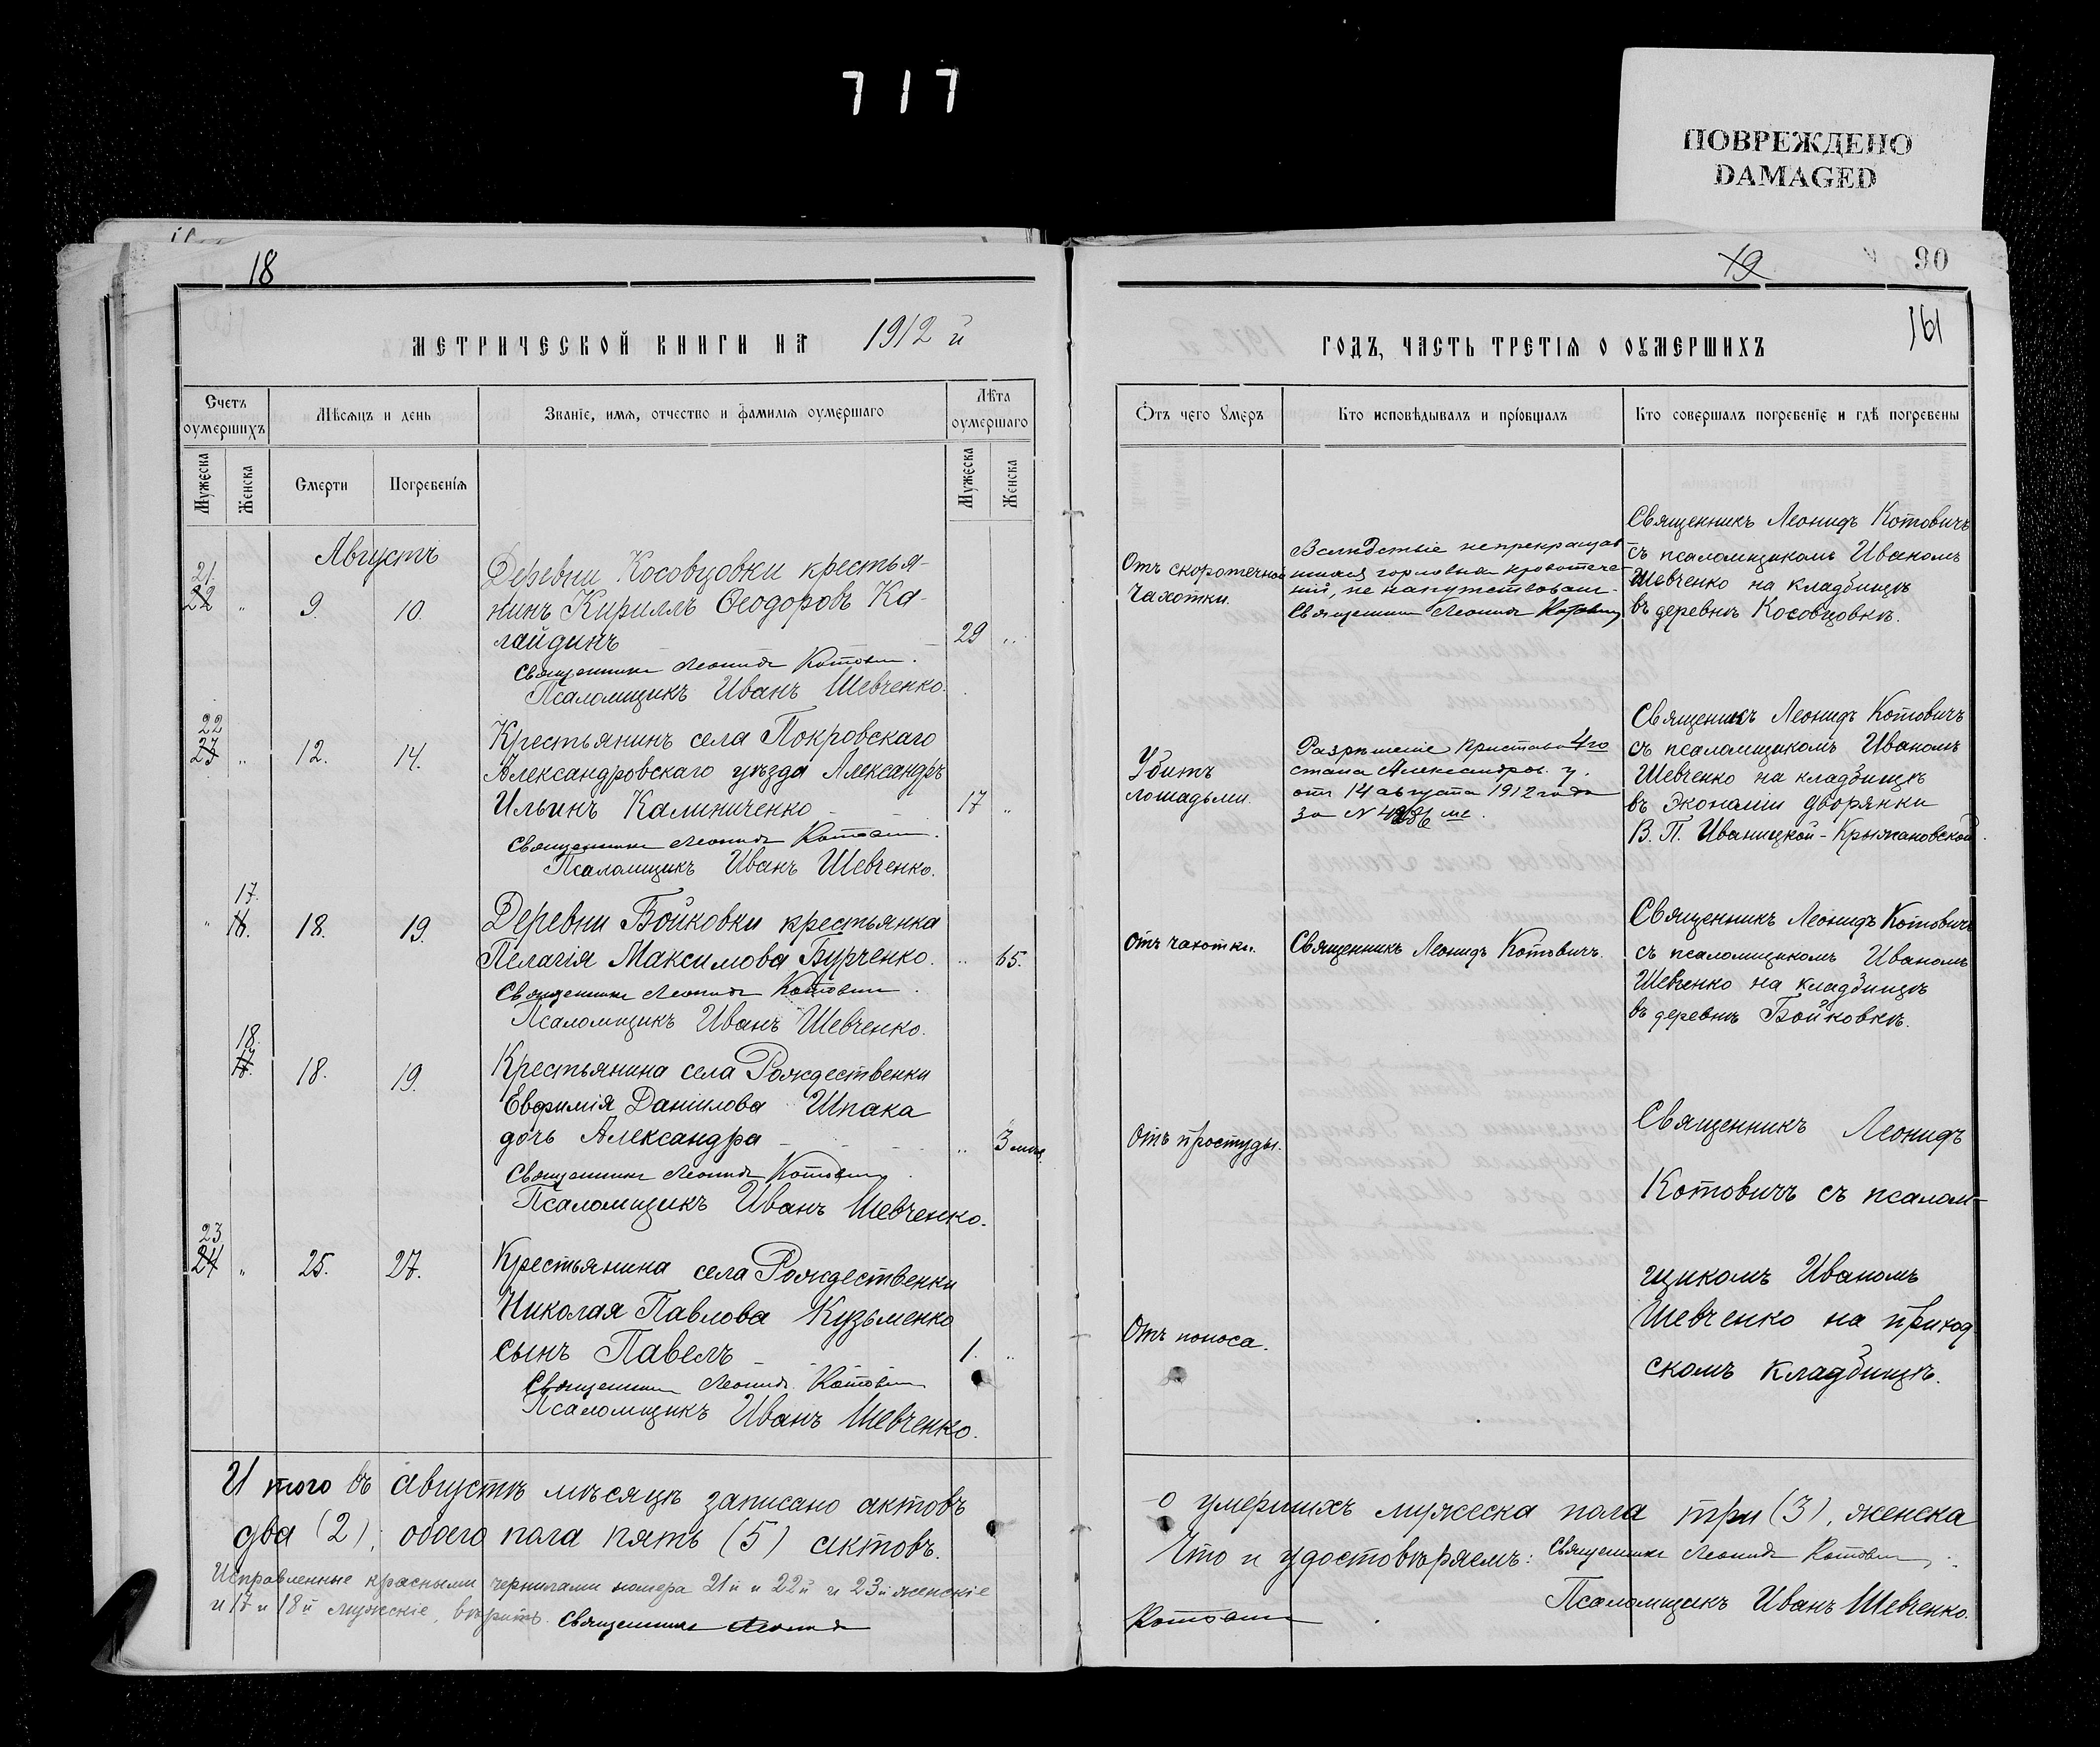 717
ПОВРЕЖДЕНО
DAMAGED
18
МЕТРИЧЕСКОЙ КНИГИ НА 1912 й
Счетъ оумершихъ
Мѣсяцъ и день
Званіе, имя, отчество и фамилія оумершаго
Лѣта оумершаго
Мужеска
Женска
Смерти
Погребенія
Мужеска
Женска
Августъ
21.
22 " 9. 10.
Деревни Косовцовки крестья-
нинъ Кириллъ Ѳеодоровъ Ка-
лайдинъ 29 "
Священникъ Леонидъ Котович.
Псаломщикъ Иванъ Шевченко.
22
23 " 12. 14.
Крестьянинъ села Покровскаго
Александровскаго уѣзда Александръ
Ильинъ Калиниченко 17 "
Священникъ Леонидъ Котович.
Псаломщикъ Иванъ Шевченко.
17.
" 16. 18. 19.
Деревни Бойковки крестьянка
Пелагія Максимова Бурченко. " 65.
Священникъ Леонидъ Котович.
Псаломщикъ Иванъ Шевченко.
18.
17. 18. 19.
Крестьянина села Рождественки
Евфимія Даниилова Шпака
дочь Александра " 3 мѣс.
Священникъ Леонидъ Котович.
Псаломщикъ Иванъ Шевченко.
23
24 " 25. 27.
Крестьянина села Рождественки
Николая Павлова Кузьменко
сынъ Павелъ 1. "
Священникъ Леонидъ Котович
Псаломщикъ Иванъ Шевченко.
И того въ августѣ мѣсяцѣ записано актовъ
два (2), обоего пола пять (5) актовъ.
Исправленные красными чернилами номера 21й и 22й и 23й женскіе
и 17 и 18й мужскіе, вѣрить. Священникъ Леонидъ
19
90
161
ГОДЪ, ЧАСТЬ ТРЕТІЯ О ОУМЕРШИХЪ
Отъ чего умеръ
Кто исповѣдывалъ и пріобщалъ
Кто совершалъ погребеніе и гдѣ погребены
Отъ скоротечной
чахотки.
Вслѣдствіе непрекращав-
шихся горловых кровотече-
ній, не напутствован.
Священник Леонидъ Котович
Священникъ Леонидъ Котовичъ
съ псаломщикомъ Иваномъ
Шевченко на кладбищѣ
въ деревнѣ Косовцовкѣ.
Убитъ
лошадьми.
Разрѣшеніе Пристава 4го
стана Александров. у.
отъ 14 августа 1912 года
за N
Священикъ Леонидъ Котовичъ
съ псаломщикомъ Иваномъ
Шевченко на кладбищѣ
въ Экономіи дворянки
В. П. Иваницкой-Крыжановской.
Отъ чахотки.
Священникъ Леонидъ Котовичъ.
Священникъ Леонидъ Котовичъ
съ псаломщикомъ Иваномъ
Шевченко на кладбищѣ
въ деревнѣ Бойковкѣ.
Отъ простуды.
Священникъ Леонидъ
Котовичъ съ псалом-
щикомъ Иваномъ
Шевченко на приход-
скомъ кладбищѣ.
Отъ поноса.
о умершихъ мужеска пола три (3), женска
Что и удостовѣряемъ: Священникъ Леонидъ Котович
Псаломщикъ Иванъ Шевченко.
Котович